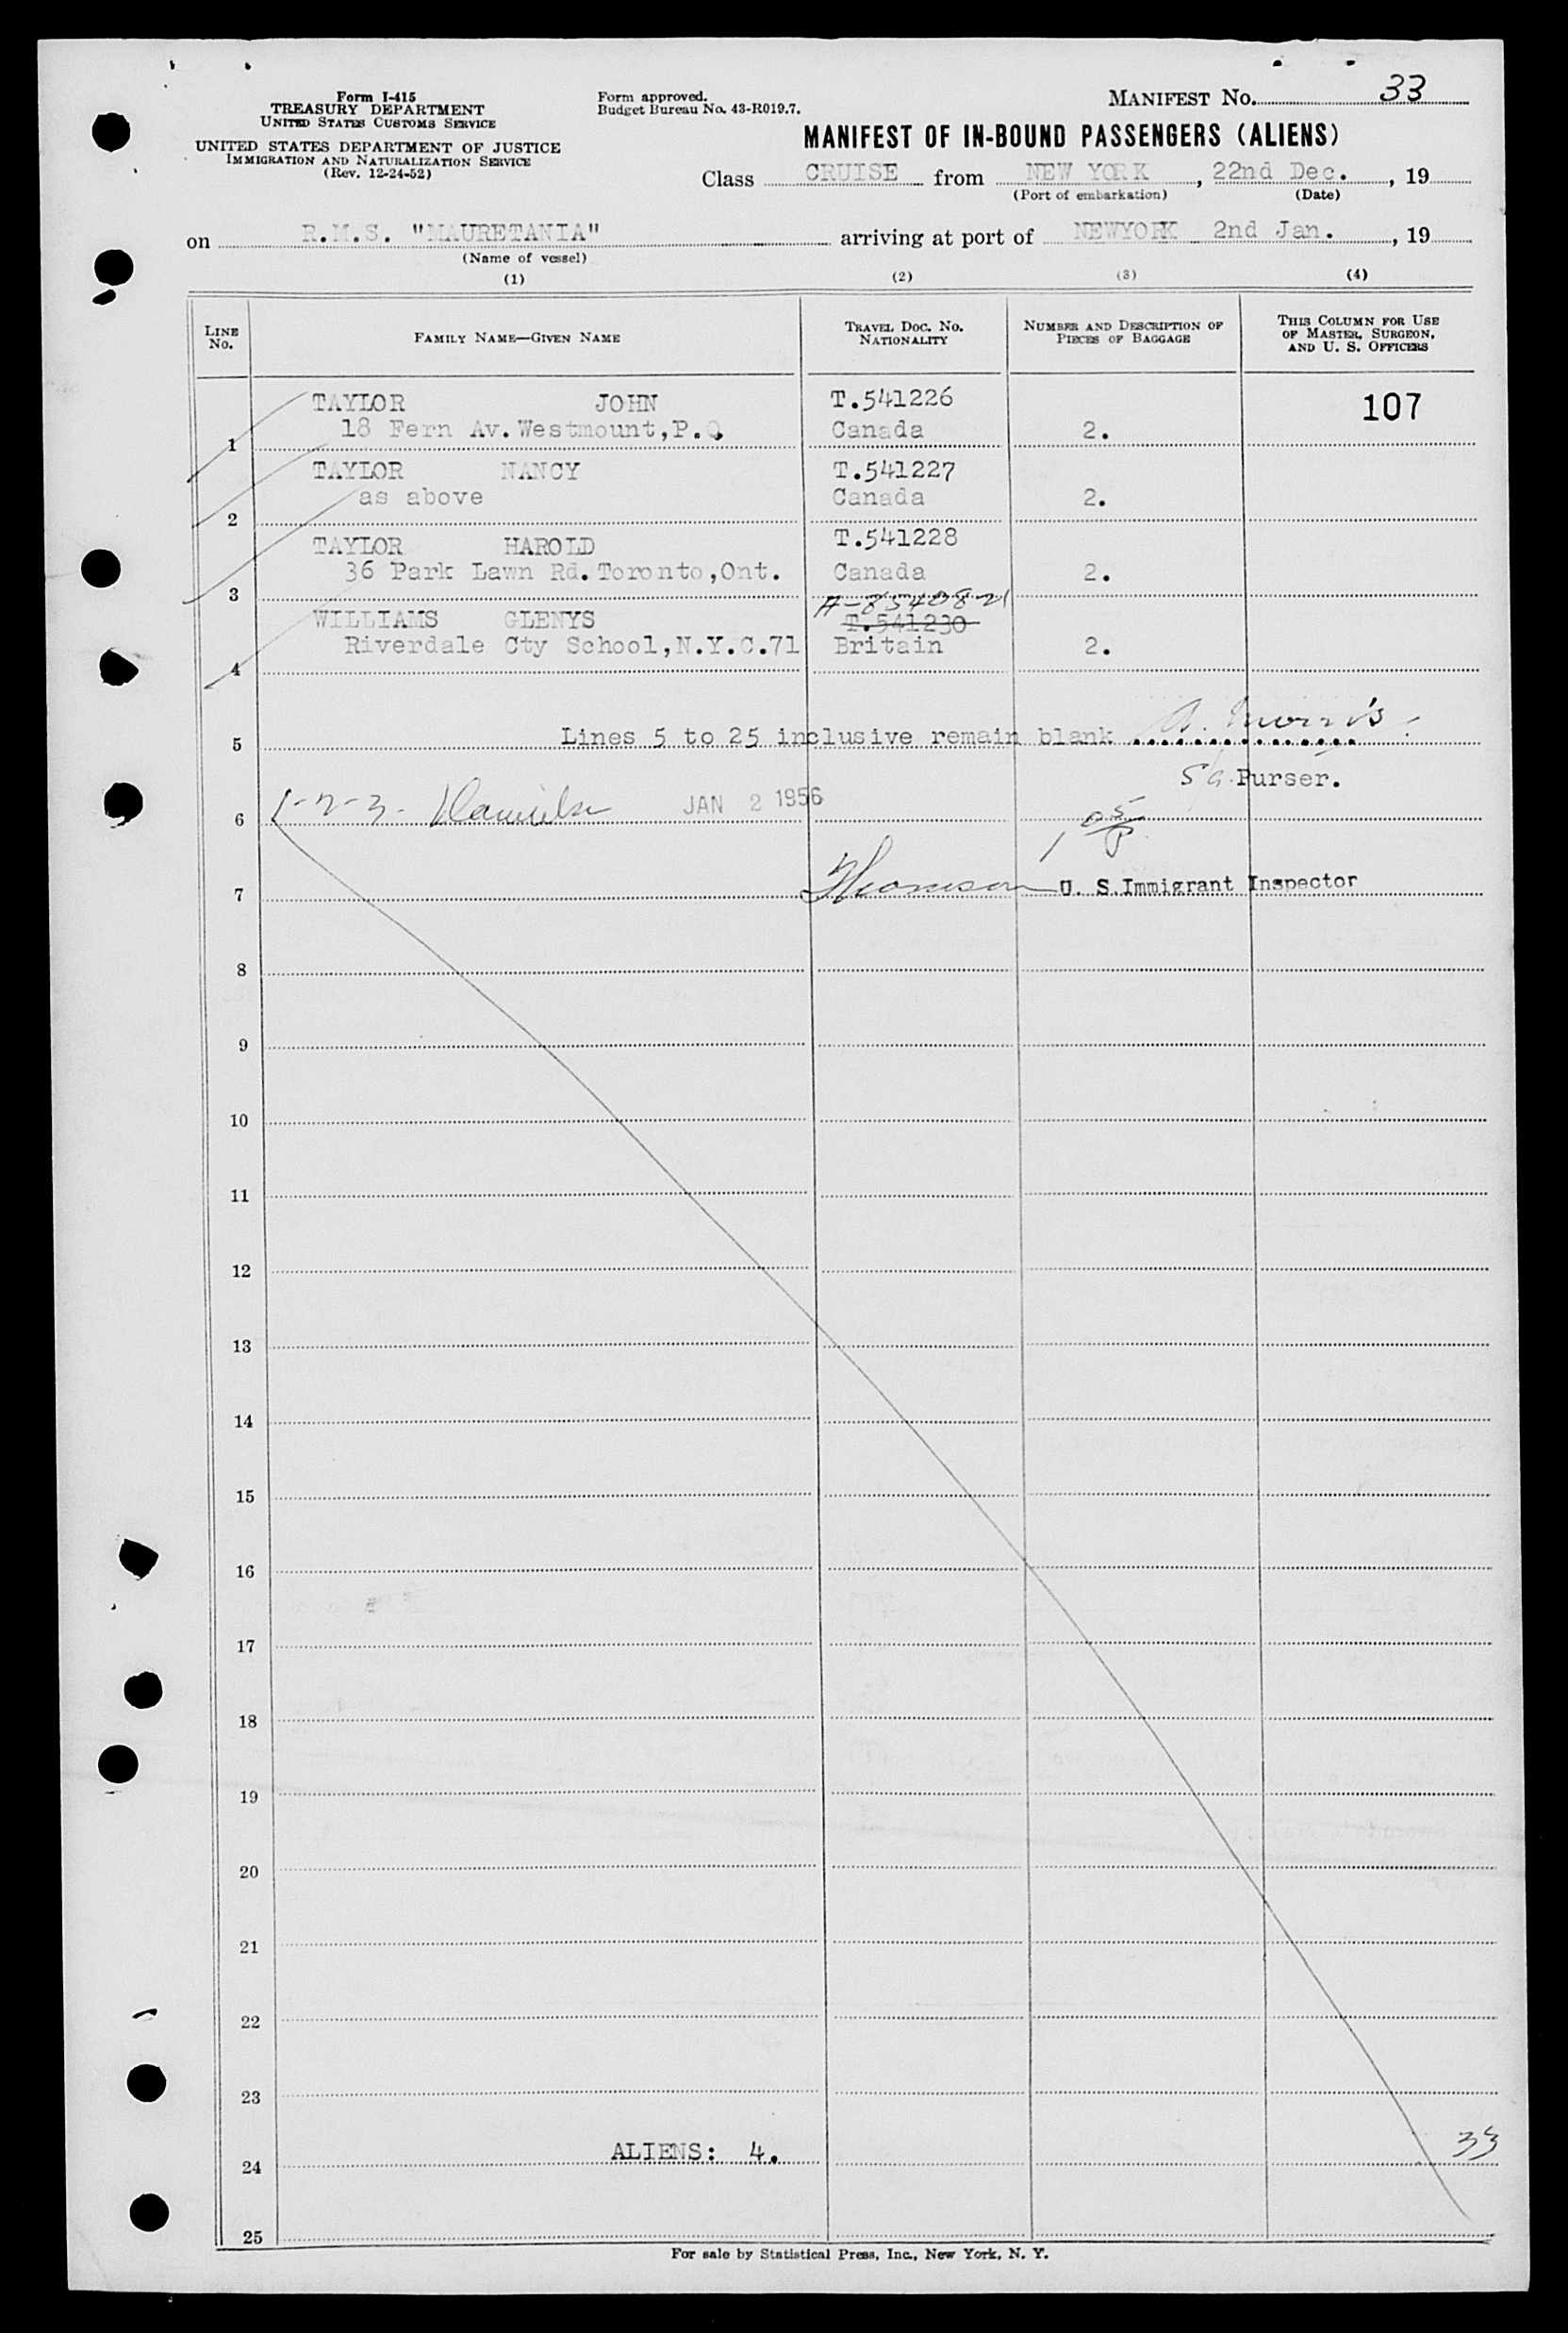 Form I-415
TREASURY DEPARTMENT
UNITED STATES CUSTOMS SERVICE
UNITED STATES DEPARTMENT OF JUSTICE
IMMIGRATION AND NATURALIZATION SERVICE
(Rev. 12-24-52)
Form approved.
Budget Bureau No. 43-R019.7.
MANIFEST No. 33
MANIFEST OF IN-BOUND PASSENGERS (ALIENS)
Class CRUISE from NEW YORK, 22nd Dec., 19
(Port of embarkation) (Date)
on R.M.S. "MAURETANIA" arriving at port of NEWYORK 2nd Jan., 19
(Name of vessel)
(1) (2) (3) (4)
LINE No. FAMILY NAME—GIVEN NAME TRAVEL DOC. No. NATIONALITY NUMBER AND DESCRIPTION OF PIECES OF BAGGAGE THIS COLUMN FOR USE OF MASTER, SURGEON, AND U. S. OFFICERS
TAYLOR JOHN T.541226 107
1 18 Fern Av.Westmount,P.Q. Canada 2.
TAYLOR NANCY T.541227
2 as above Canada 2.
TAYLOR HAROLD T.541228
3 36 Park Lawn Rd.Toronto,Ont. Canada 2.
A-8540821
WILLIAMS GLENYS T.541230
4 Riverdale Cty School,N.Y.C.71 Britain 2.
5 Lines 5 to 25 inclusive remain blank A. Morris
Purser.
6 1-2-3- JAN 2 1956
7 U. S. Immigrant Inspector
8
9
10
11
12
13
14
15
16
17
18
19
20
21
22
23
24 ALIENS: 4. 33
25
For sale by Statistical Press, Inc., New York, N. Y.